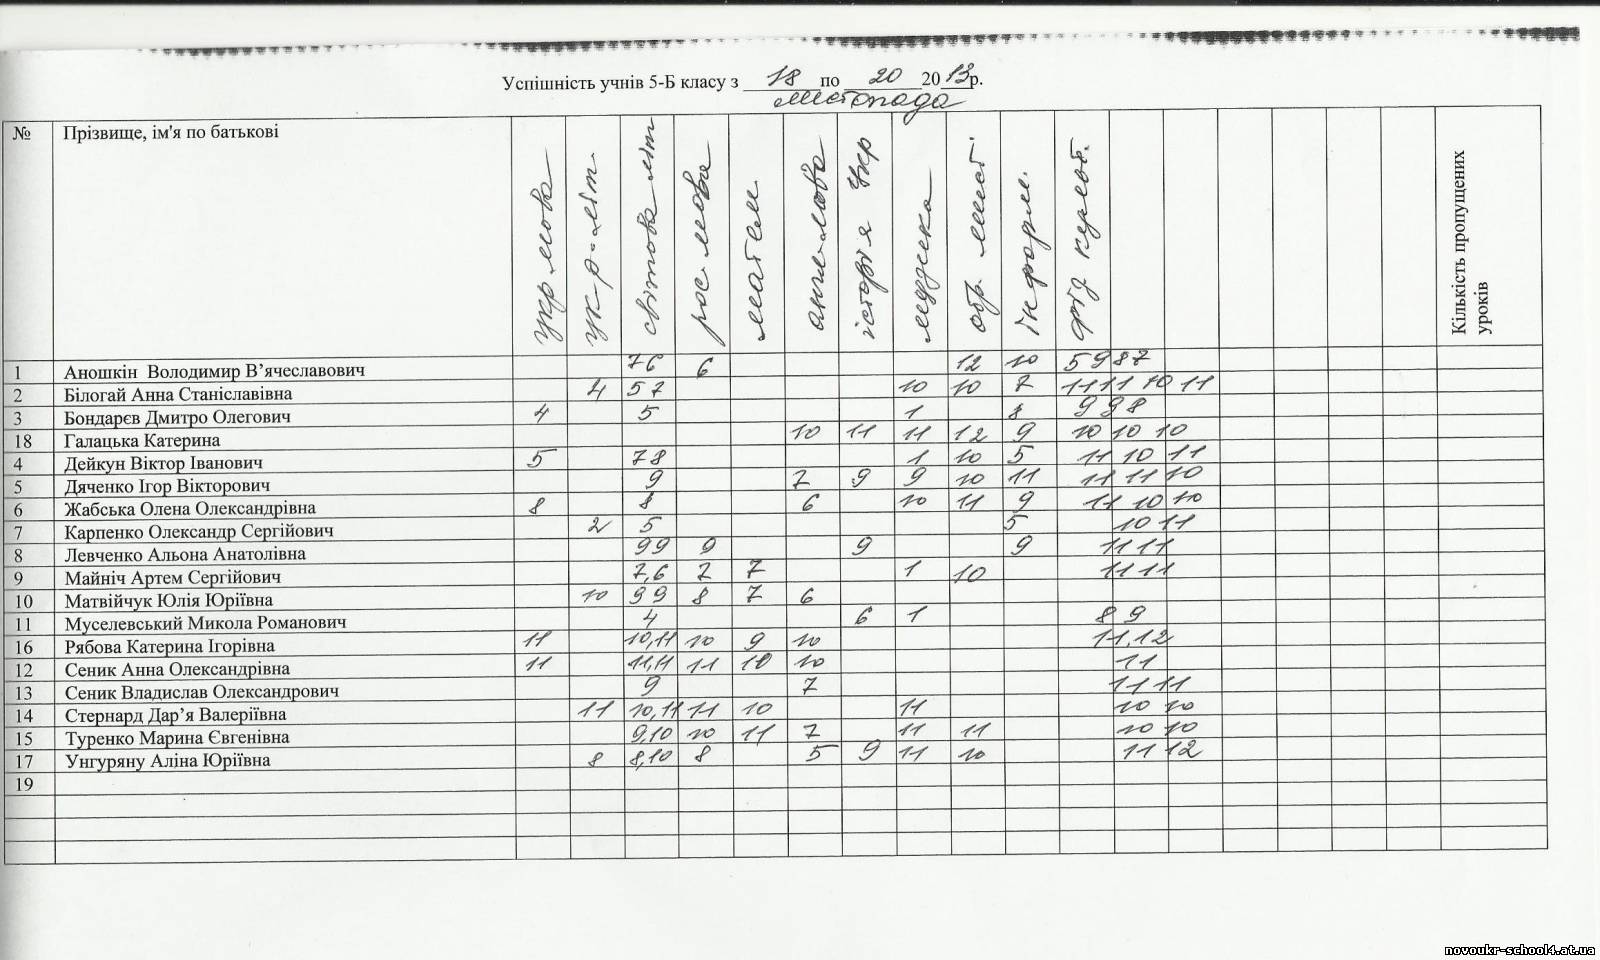 Успішність учнів 5-Б класу з 18 по 20 2013р.
листопада
№ Прізвище, ім'я по батькові укр мова укр-літ. світова літ рос-мова матем англ-мова історія Укр музика обр. мист інформ. фіз культ. Кількість пропущених уроків
1 Аношкін Володимир В’ячеславович 76 6 12 10 5 9 8 7
2 Білогай Анна Станіславівна 4 57 10 10 7 11 11 10 11
3 Бондарєв Дмитро Олегович 4 5 1 8 9 9 8
18 Галацька Катерина 10 11 11 12 9 10 10 10
4 Дейкун Віктор Іванович 5 78 1 10 5 11 10 11
5 Дяченко Ігор Вікторович 9 7 9 9 10 11 11 11 10
6 Жабська Олена Олександрівна 8 8 6 10 11 9 11 10 10
7 Карпенко Олександр Сергійович 2 5 5 10 11
8 Левченко Альона Анатолівна 99 9 9 9 11 11
9 Майніч Артем Сергійович 7,6 7 7 1 10 11 11
10 Матвійчук Юлія Юріївна 10 99 8 7 6
11 Муселевський Микола Романович 4 6 1 8 9
16 Рябова Катерина Ігорівна 11 10,11 10 9 10 11,12
12 Сеник Анна Олександрівна 11 11,11 11 10 10 11
13 Сеник Владислав Олександрович 9 7 11 11
14 Стернард Дар’я Валеріївна 11 10,11 11 10 11 10 10
15 Туренко Марина Євгенівна 9,10 10 11 7 11 11 10 10
17 Унгуряну Аліна Юріївна 8 8,10 8 5 9 11 10 11 12
19
novoukr-school4.at.ua